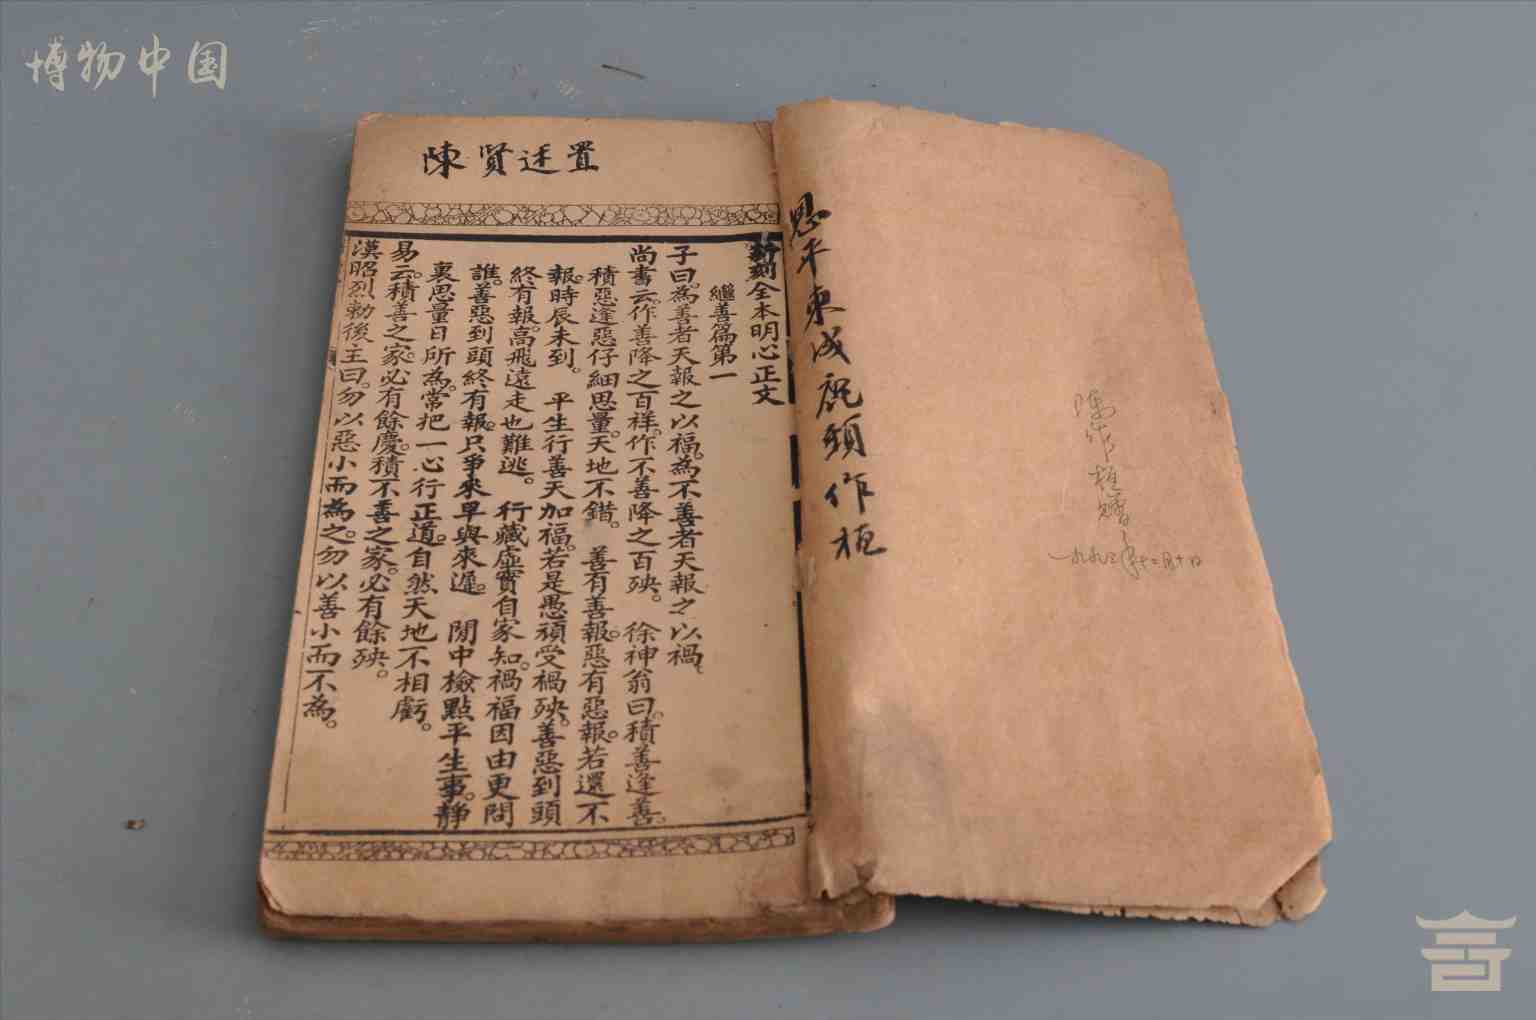 博物中国
陳賢述置
恩平東成
頭作桓
陳作桓贈
新刻全本明心正文
繼善篇第一
子曰。為善者天報之以福。為不善者天報之以禍。
尚書云。作善降之百祥。作不善降之百殃。　徐神翁曰。積善逢善。
積惡逢惡仔細思量。天地不錯。　善有善報。惡有惡報。若還不
報。時辰未到。　平生行善天加福。若是愚頑受禍殃。善惡到頭
終有報。高飛遠走也難逃。　行藏虛實自家知。禍福因由更問
誰。善惡到頭終有報。只爭來早與來遲。　閒中檢點平生事。靜
裏思量日所為。常把一心行正道。自然天地不相虧。
易云。積善之家。必有餘慶。積不善之家。必有餘殃。
漢昭烈勅後主曰。勿以惡小而為之。勿以善小而不為。